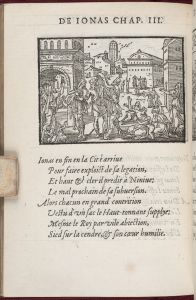 DE IONAS CHAP. III.
Ionas en fin en la Cité arriue
Pour faire exploict de sa legation,
Et haut & cler il predit à Niniue
Le mal prochain de sa subuersion.
Alors chacun en grand contrition
Vestu d'vn sac le Haut-tonnant supplye:
Mesme le Roy par ville abiection,
Sied sur la cendre, & son cœur humilie.